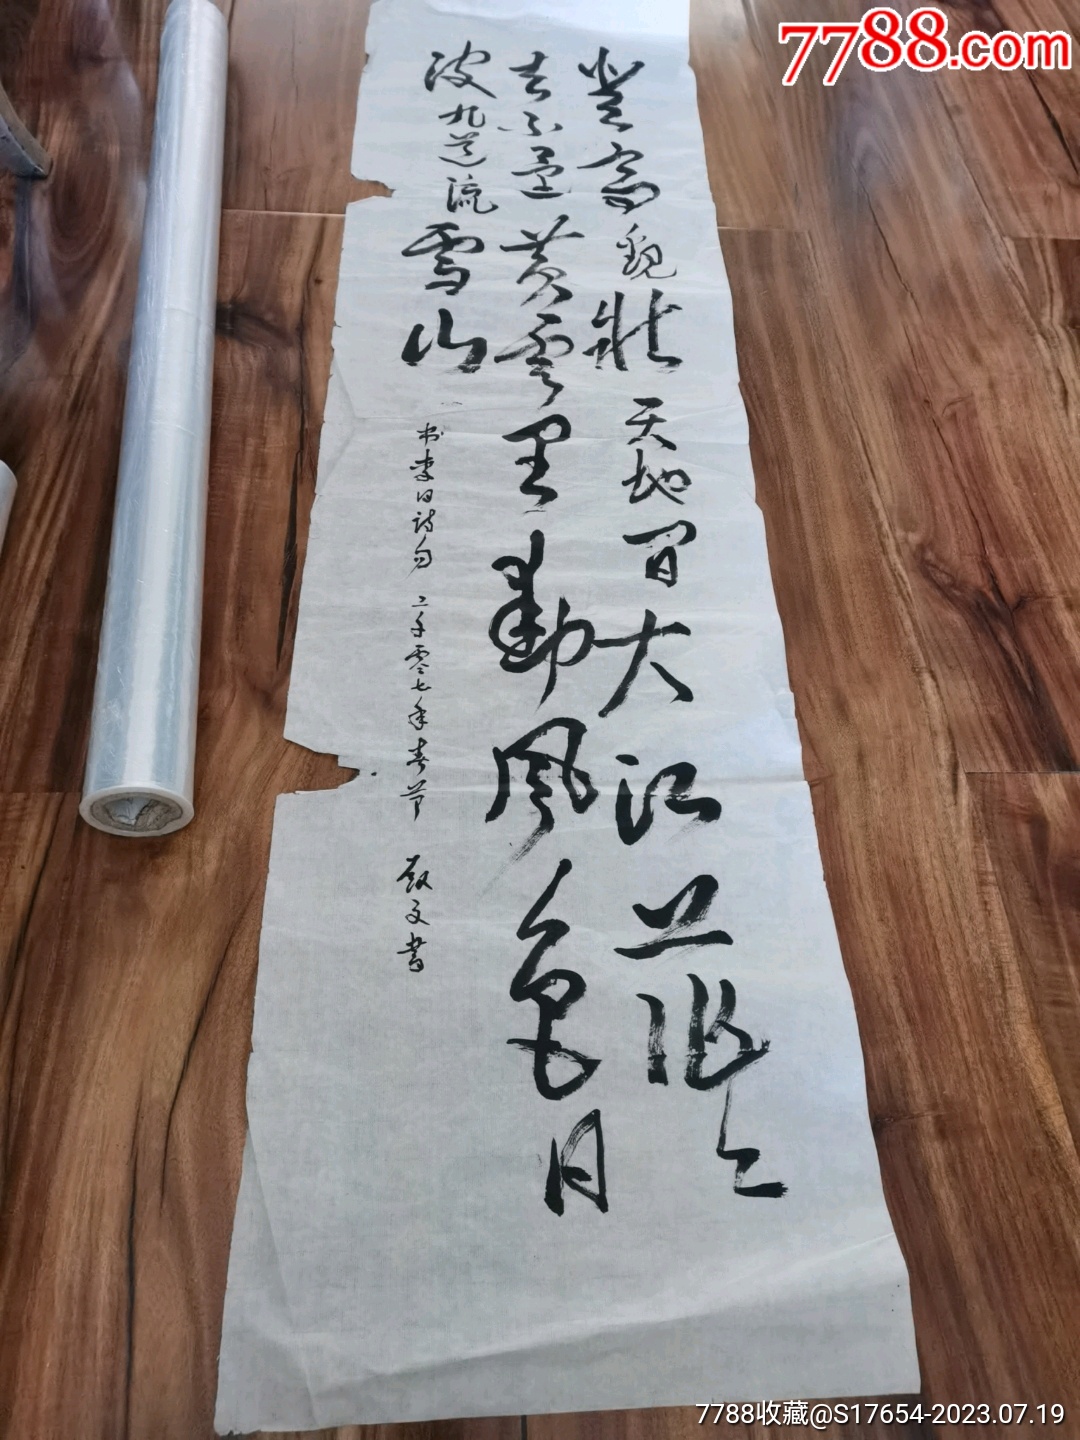 7788.com
登高觀壯天地間大江茫々
去不還黃雲里動風色白
波九道流雪山
书李白詩句 二千零七年春节 文書
7788收藏@S17654-2023.07.19